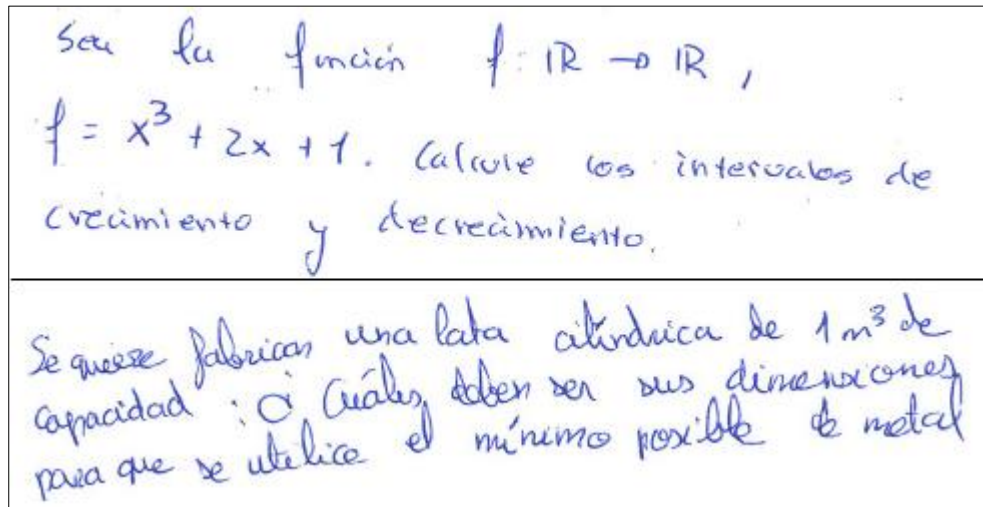 Sea la función f: ℝ → ℝ,
f = x³ + 2x + 1. Calcule los intervalos de
crecimiento y decrecimiento.
Se quiere fabricar una lata cilíndrica de 1 m³ de
capacidad: ¿Cuáles deben ser sus dimensiones
para que se utilice el mínimo posible de metal